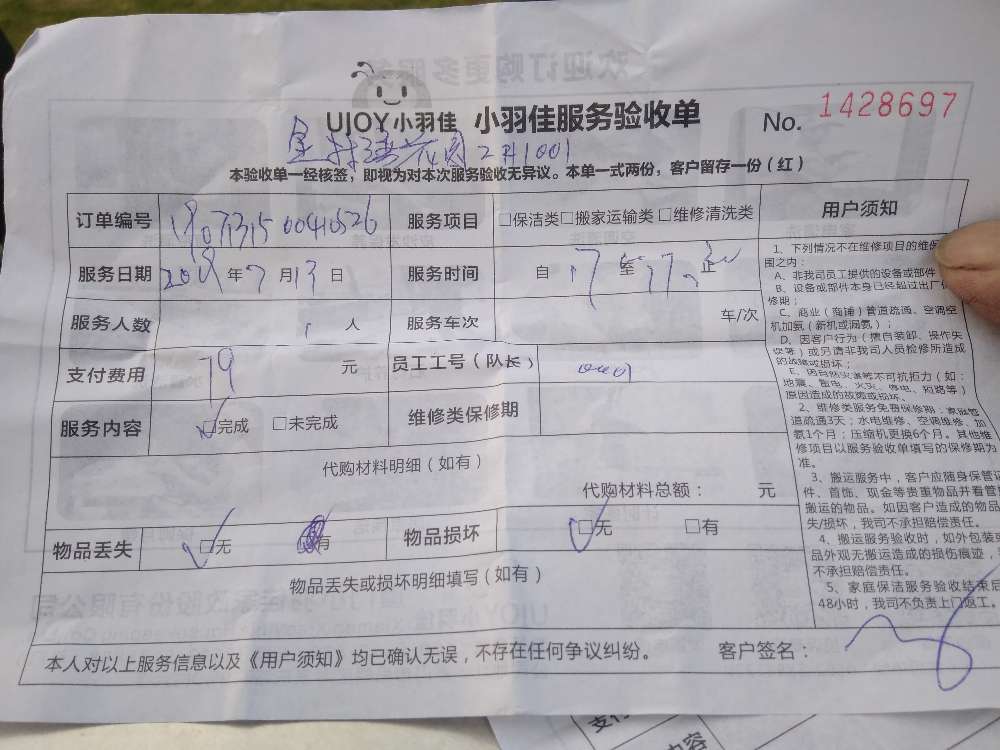 UJOY小羽佳 小羽佳服务验收单 No. 1428697
花园2#1001
本验收单一经核签，即视为对本次服务验收无异议。本单一式两份，客户留存一份（红）
订单编号 服务项目 □保洁类□搬家运输类□维修清洗类 用户须知
服务日期 年7月13日 服务时间 自17至 止
服务人数 1人 服务车次 车/次
支付费用 79 元 员工工号（队长）
服务内容 ☑完成 □未完成 维修类保修期
代购材料明细（如有）
代购材料总额： 元
物品丢失 ☑无 有 物品损坏 ☑无 □有
物品丢失或损坏明细填写（如有）
本人对以上服务信息以及《用户须知》均已确认无误，不存在任何争议纠纷。 客户签名：
1、下列情况不在维修项目的维保
围之内：
A、非我司员工提供的设备或部件
B、设备或部件本身已经超过出厂
修期；
C、商业（商铺）管道疏通、空调空
机加氨（新机或漏氨）；
D、因客户行为（擅自装卸、操作失
）或另请非我司人员检修所造成
的故障或损坏；
E、因自然灾害等不可抗拒力（如：
地震、雷电、火灾、停电、短路等）
原因造成的故障或损坏。
2、维修类服务免费保修期：家庭管
道疏通3天；水电维修、空调维修、加
氨1个月；压缩机更换6个月。其他维
修项目以服务验收单填写的保修期为
准。
3、搬运服务中，客户应随身保管证
件、首饰、现金等贵重物品并看管
搬运的物品。如因客户造成的物品
失/损坏，我司不承担赔偿责任。
4、搬运服务验收时，如外包装或
品外观无搬运造成的损伤痕迹，
不承担赔偿责任。
5、家庭保洁服务验收结束后
48小时，我司不负责上门返工。
支付
内容